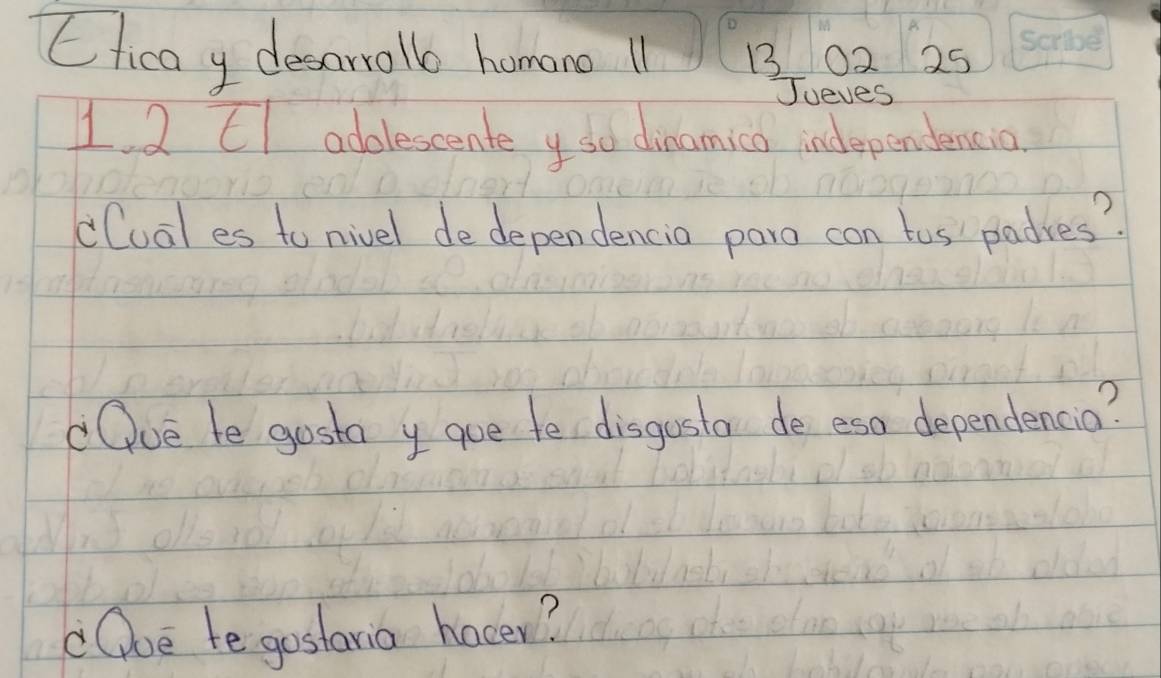 Etica y desarrollo humano II D 13 M 02 A 25 Scribe
Jueves
1.2 El adolescente y su dinamica independencia.
¿Cuál es tu nivel de dependencia para con tus padres?
¿Qué te gusta y que te disgusta de esa dependencia?
¿Qué te gustaria hacer?